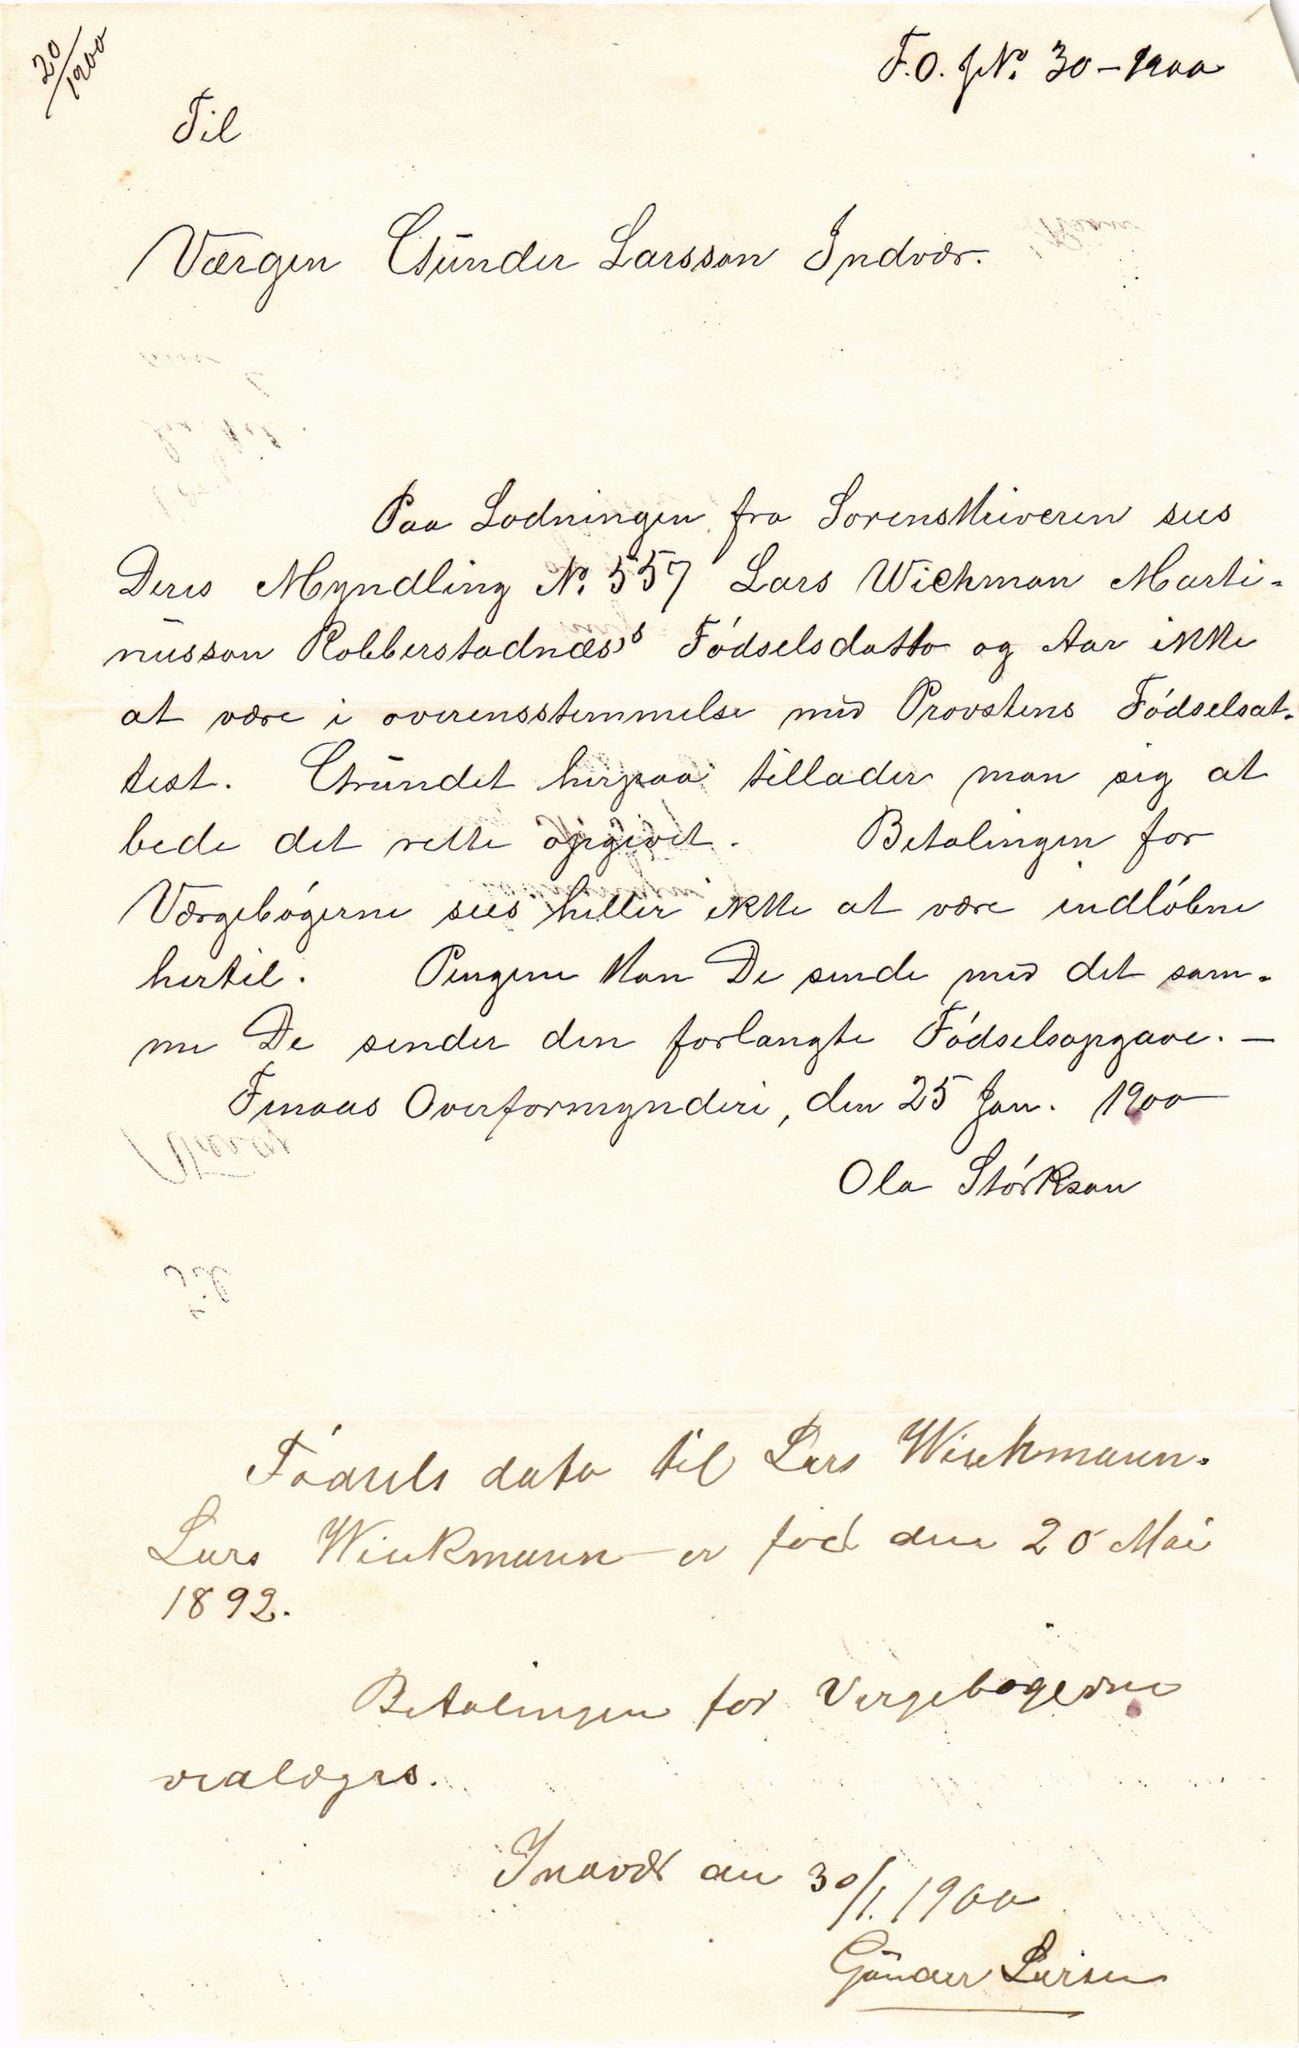 20/1900
F.O. JNo. 30 – 1900
Til
Værgen Gunder Larsson Indvær.
Paa Lodningen fra Sorenskriveren sees
Deres Myndling No. 557 Lars Wichman Marti-
nusson Robberstadnæs's Fødselsdatto og Aar ikke
at være i overensstemmelse med Provstens Fødselsat-
test. Grundet herpaa tillader man sig at
bede det rette opgivet. Betalingen for
Værgebøgerne sees heller ikke at være indløbne
hertil. Pengene kan De sende med det sam-
me De sender den forlangte Fødselsopgave. –
Finaas Overformynderi, den 25 Jan. 1900
Ola Størkson
Fødsels dato til Lars Winkmann.
Lars Winkmann er fød den 20 Mai
1892.
Betalingen for Vergebøgerne
vedlægges.
Indvær den 30/1. 1900
Gunder Larsen